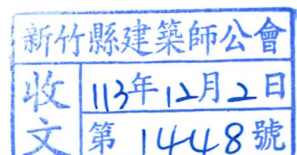 新竹縣建築師公會
收文
113年12月2日
第1448號